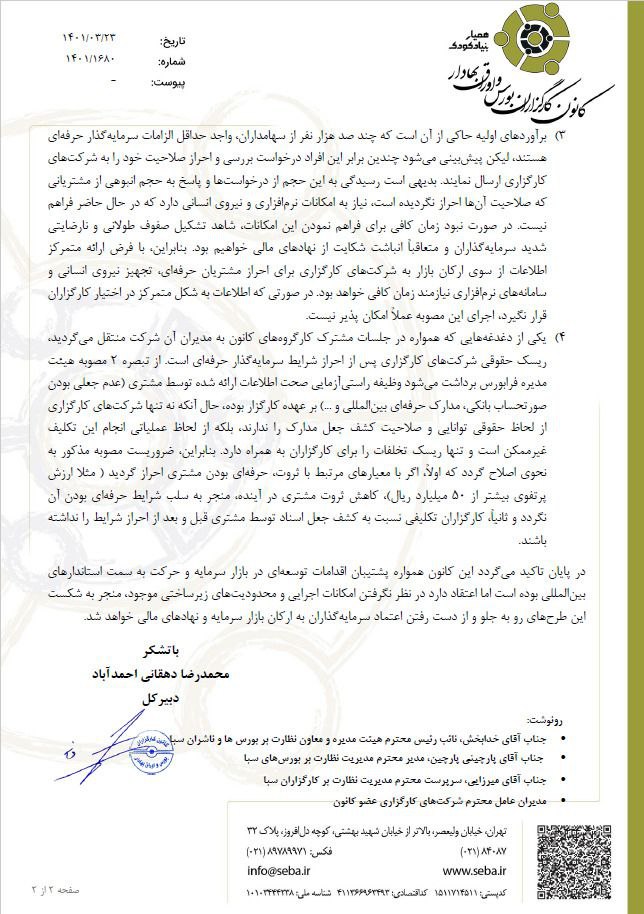 همیار
بنیادکودک
کانون کارگزاران بورس و اوراق بهادار
تاریخ: ۱۴۰۱/۰۳/۲۳
شماره: ۱۴۰۱/۱۶۸۰
پیوست: -
۳) برآوردهای اولیه حاکی از آن است که چند صد هزار نفر از سهامداران، واجد حداقل الزامات سرمایه‌گذار حرفه‌ای
هستند، لیکن پیش‌بینی می‌شود چندین برابر این افراد درخواست بررسی و احراز صلاحیت خود را به شرکت‌های
کارگزاری ارسال نمایند. بدیهی است رسیدگی به این حجم از درخواست‌ها و پاسخ به حجم انبوهی از مشتریانی
که صلاحیت آن‌ها احراز نگردیده است، نیاز به امکانات نرم‌افزاری و نیروی انسانی دارد که در حال حاضر فراهم
نیست. در صورت نبود زمان کافی برای فراهم نمودن این امکانات، شاهد تشکیل صفوف طولانی و نارضایتی
شدید سرمایه‌گذاران و متعاقباً انباشت شکایت از نهادهای مالی خواهیم بود. بنابراین، با فرض ارائه متمرکز
اطلاعات از سوی ارکان بازار به شرکت‌های کارگزاری برای احراز مشتریان حرفه‌ای، تجهیز نیروی انسانی و
سامانه‌های نرم‌افزاری نیازمند زمان کافی خواهد بود. در صورتی که اطلاعات به شکل متمرکز در اختیار کارگزاران
قرار نگیرد، اجرای این مصوبه عملاً امکان پذیر نیست.
۴) یکی از دغدغه‌هایی که همواره در جلسات مشترک کارگروه‌های کانون به مدیران آن شرکت منتقل می‌گردید،
ریسک حقوقی شرکت‌های کارگزاری پس از احراز شرایط سرمایه‌گذار حرفه‌ای است. از تبصره ۲ مصوبه هیئت
مدیره فرابورس برداشت می‌شود وظیفه راستی‌آزمایی صحت اطلاعات ارائه شده توسط مشتری (عدم جعلی بودن
صورتحساب بانکی، مدارک حرفه‌ای بین‌المللی و ...) بر عهده کارگزار بوده، حال آنکه نه تنها شرکت‌های کارگزاری
از لحاظ حقوقی توانایی و صلاحیت کشف جعل مدارک را ندارند، بلکه از لحاظ عملیاتی انجام این تکلیف
غیرممکن است و تنها ریسک تخلفات را برای کارگزاران به همراه دارد. بنابراین، ضروریست مصوبه مذکور به
نحوی اصلاح گردد که اولاً، اگر با معیارهای مرتبط با ثروت، حرفه‌ای بودن مشتری احراز گردید ( مثلا ارزش
پرتفوی بیشتر از ۵۰ میلیارد ریال)، کاهش ثروت مشتری در آینده، منجر به سلب شرایط حرفه‌ای بودن آن
نگردد و ثانیاً، کارگزاران تکلیفی نسبت به کشف جعل اسناد توسط مشتری قبل و بعد از احراز شرایط را نداشته
باشند.
در پایان تاکید می‌گردد این کانون همواره پشتیبان اقدامات توسعه‌ای در بازار سرمایه و حرکت به سمت استاندارهای
بین‌المللی بوده است اما اعتقاد دارد در نظر نگرفتن امکانات اجرایی و محدودیت‌های زیرساختی موجود، منجر به شکست
این طرح‌های رو به جلو و از دست رفتن اعتماد سرمایه‌گذاران به ارکان بازار سرمایه و نهادهای مالی خواهد شد.
با تشکر
محمدرضا دهقانی احمدآباد
دبیرکل
رونوشت:
• جناب آقای خدابخش، نائب رئیس محترم هیئت مدیره و معاون نظارت بر بورس ها و ناشران سبا
• جناب آقای پارچینی پارچین، مدیر محترم مدیریت نظارت بر بورس‌های سبا
• جناب آقای میرزایی، سرپرست محترم مدیریت نظارت بر کارگزاران سبا
• مدیران عامل محترم شرکت‌های کارگزاری عضو کانون
تهران، خیابان ولیعصر، بالاتر از خیابان شهید بهشتی، کوچه دل‌افروز، پلاک ۳۲
۸۴۰۸۷ (۰۲۱) فکس: ۸۹۷۸۹۹۷۱ (۰۲۱)
www.seba.ir info@seba.ir
کدپستی: ۱۵۱۱۷۱۴۵۱۱ کداقتصادی: ۴۱۱۳۶۶۹۶۳۴۹۳ شناسه ملی: ۱۰۱۰۳۴۴۴۳۳۸
صفحه ۲ از ۲